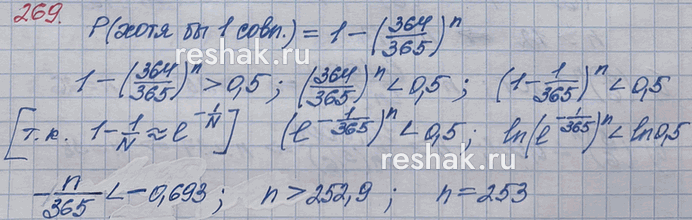 269.
P(хотя бы 1 совп.) = 1 - (364/365)^n
1 - (364/365)^n > 0,5 ; (364/365)^n < 0,5 ; (1 - 1/365)^n < 0,5
[т.к. 1 - 1/N ≈ e^(-1/N)] (e^(-1/365))^n < 0,5 ; ln(e^(-1/365))^n < ln0,5
reshak.ru
-n/365 < -0,693 ; n > 252,9 ; n = 253
reshak.ru